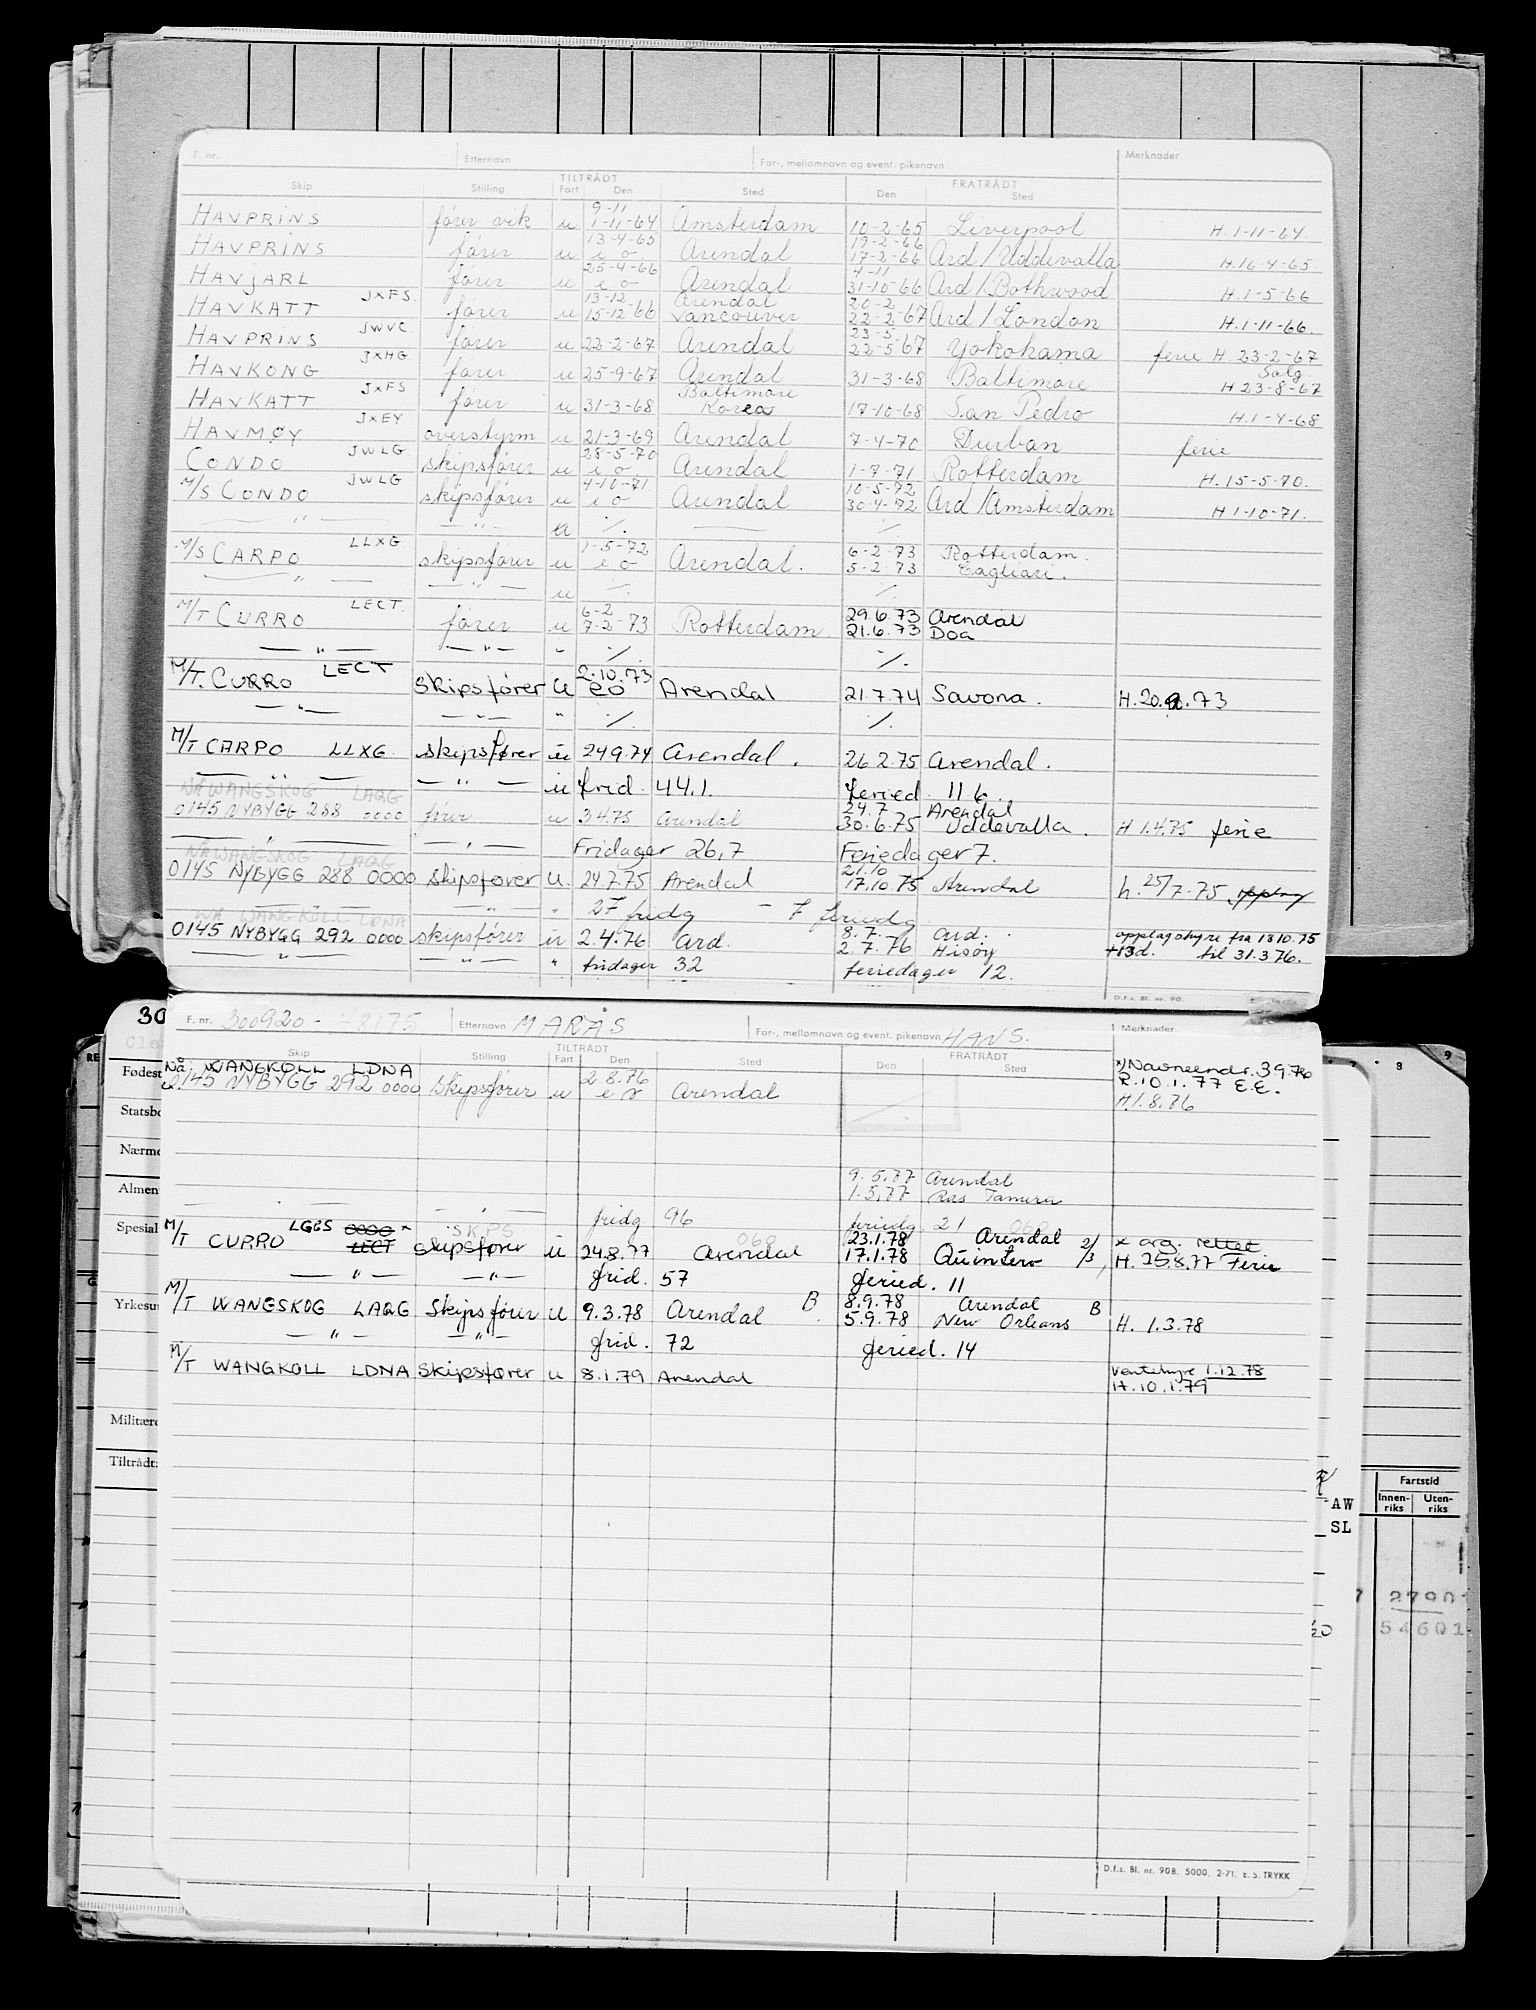 F. nr. Etternavn For-, mellomnavn og event. pikenavn Merknader
TILTRÅDT FRATRÅDT
Skip Stilling Fart Den Sted Den Sted
9-11
HAVPRINS fører vik u 1-11-64 Amsterdam 10-2-65 Liverpool H. 1-11-64.
13-4-65 19-2-66
HAVPRINS fører u e o Arendal 17-2-66 Ard/Uddevalla H. 16-4-65.
25-4-66 4-11
HAVJARL fører u e o Arendal 31-10-66 Ard/Bothwood H. 1-5-66
JXFS. 13-12- Arendal 20-2
HAVKATT fører u 15-12 66 Vancouver 22-2-67 Ard/London H. 1-11-66.
JWVC. 23-5
HAVPRINS fører u 22-2-67 Arendal 22-5 67 Yokohama ferie H. 23-2-67
JXHG. Salg.
HAVKONG fører u 25-9-67 Arendal 31-3-68 Baltimore H 23-8-67
JXFS Baltimore
HAVKATT fører u 31-3-68 Korea 17-10-68 San Pedro H. 1-4-68
JXEY
HAVMØY overstyrm u 21-3-69 Arendal 7-4-70 Durban ferie
JWLG. 28-5-70
CONDO skipsfører u e o Arendal 1-7-71 Rotterdam H. 15-5-70.
JWLG 4-10-71. 10-5-72
M/S CONDO skipsfører u e o Arendal 30-4-72 Ard/Amsterdam H 1-10-71.
— " — — " — u ·/. — ·/.
LLXG 1-5-72 6-2-73 Rotterdam.
M/S CARPO skipsfører u e o Arendal. 5-2-73 Cagliari.
— " — — " — u ·/. ·/.
LECT. 6-2 29.6.73 Arendal
M/T CURRO fører u 7-2-73 Rotterdam. 21.6.73 Doa
— " — — " — " ·/. ·/.
LECT 2.10.73
M/T. CURRO Skipsfører U eo Arendal 21.7.74 Savona. H. 20.9.73
— " — — " — " ·/. ·/.
M/T CARPO LLXG skipsfører u 24.9.74 Arendal. 26 2.75 Arendal.
— " — — " — u frid. 44.1. feried. 11 6.
NÅ WANGSKOG LAQG 24.7 Arendal
0145 NYBYGG 288 0000 fører u 3475 Arendal 30.6.75 Uddevalla. H 1.4.75 ferie
— " — — " — Fridager 26,7 Feriedager 7.
NÅ WANGSKOG LAQG 21.10
0145 NYBYGG 288 0000 Skipsfører U. 24.7.75 Arendal 17.10.75 Arendal h. 25/7-75 opplag
— " — " 27 fridg — 7 feriedg.
NÅ WANGKOLL LDNA 8.7. Ard.
0145 NYBYGG 292 0000 skipsfører u 2.4.76 Ard. 2.7.76 Hisøy opplagshyre fra 18 10.75
+13d. til 31.3 76.
— " — — " — " fridager 32 feriedager 12.
D.f.s. Bl. nr. 90.
30
F. nr. 300920- 48175 Etternavn MARÅS For-, mellomnavn og event. pikenavn HANS. Merknader
TILTRÅDT FRATRÅDT
Skip Stilling Fart Den Sted Den Sted
Fødest
Nå WANGKOLL LDNA 2.8.76 x) Navneendr. 3 9.76
0145 NYBYGG 292 0000 Skipsfører u e o Arendal R. 10.1.77 E.E.
H. 1.8.76
Statsbo
Nærme
Almen
9.5.77 Arendal
1.5.77 Ras Tanura
Spesial
fridg 96 feriedg. 21
LGBS 0000 x SKPS 23.1.78 Arendal 2/ x org. rettet
M/T CURRO LECT skipsfører u 24.8.77 Arendal 17.1.78 Quintero /3, H. 25.8.77 Ferie
— " — — " — frid. 57 feried. 11
Yrkesu
8.9.78 Arendal B
M/T WANGSKOG LAQG Skipsfører u 9.3.78 Arendal B 5.9.78 New Orleans H. 1.3.78
— " — — " — frid. 72 feried. 14
M/T WANGKOLL LDNA Skipsfører u 8.1.79 Arendal Ventehyre 1.12.78
H. 10.1.79
Militære
Tiltrådt:
Fartstid
Innen-riks Uten-riks
AW
SL
27901
54601
D.f.s. Bl. nr. 90B. 5000. 2-71. E.S. TRYKK